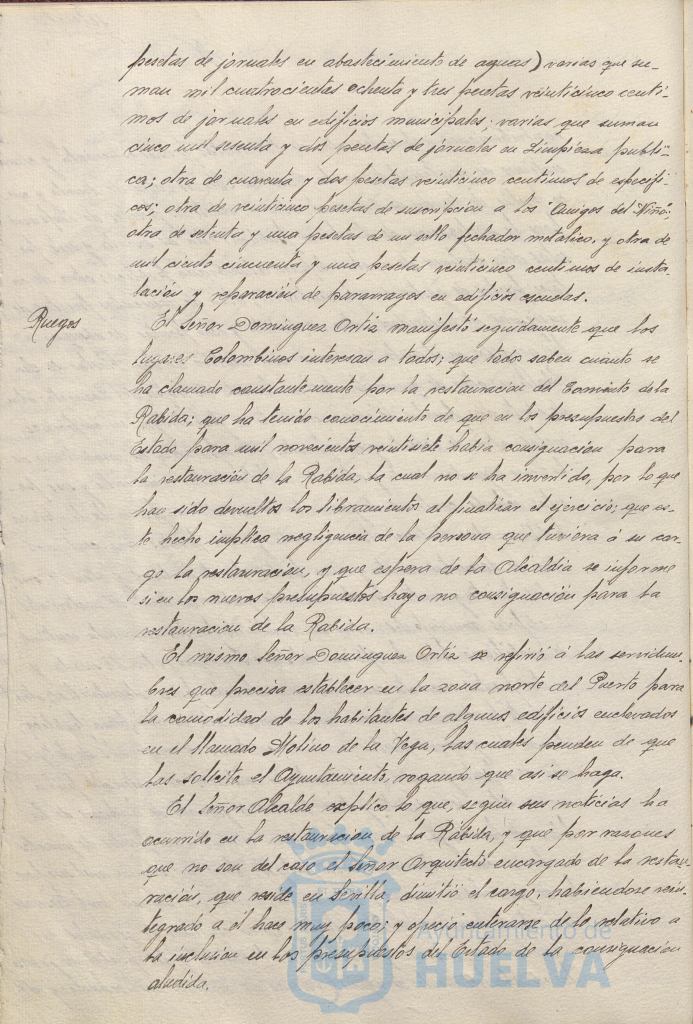 pesetas de jornales en abastecimiento de aguas) varias que su-
man mil cuatrocientas ochenta y tres pesetas veinticinco centi-
mos de jornales en edificios municipales; varias que suman
cinco mil sesenta y dos pesetas de jornales en Limpieza públi-
ca; otra de cuarenta y dos pesetas veinticinco centimos de especifi-
cos; otra de veinticinco pesetas de suscripcion a los "Amigos del Niño";
otra de setenta y una pesetas de un sello fechador metalico, y otra de
mil ciento cincuenta y una pesetas veinticinco centimos de insta-
lación y reparación de pararrayos en edificios escuelas.
Ruegos
El Señor Dominguez Ortiz manifestó seguidamente que los
lugares Colombinos interesan a todos; que todos saben cuanto se
ha clamado constantemente por la restauracion del Convento de la
Rabida; que ha tenido conocimiento de que en los presupuestos del
Estado para mil novecientos veintisiete habia consignacion para
la restauración de la Rabida, la cual no se ha invertido, por lo que
han sido devueltos los libramientos al finalizar el ejercicio; que es-
te hecho implica negligencia de la persona que tuviera á su car-
go la restauracion, y que espera de la Alcaldia se informe
si en los nuevos presupuestos hay o no consignación para la
restauracion de la Rabida.
El mismo Señor Dominguez Ortiz se refirió á las servidum-
bres que precisa establecer en la zona norte del Puerto para
la comodidad de los habitantes de algunos edificios enclavados
en el llamado Molino de la Vega, las cuales penden de que
las solicite el Ayuntamiento, rogando que asi se haga.
El Señor Alcalde explicó lo que, segun sus noticias ha
ocurrido en la restauracion de la Rabida, y que por razones
que no son del caso el Señor Arquitecto encargado de la restau-
ración, que reside en Sevilla, dimitió el cargo, habiendose rein-
tegrado a él hace muy poco; y ofreció enterarse de lo relativo a
la inclusion en los presupuestos del Estado de la consignacion
aludida.
Ayuntamiento de
HUELVA